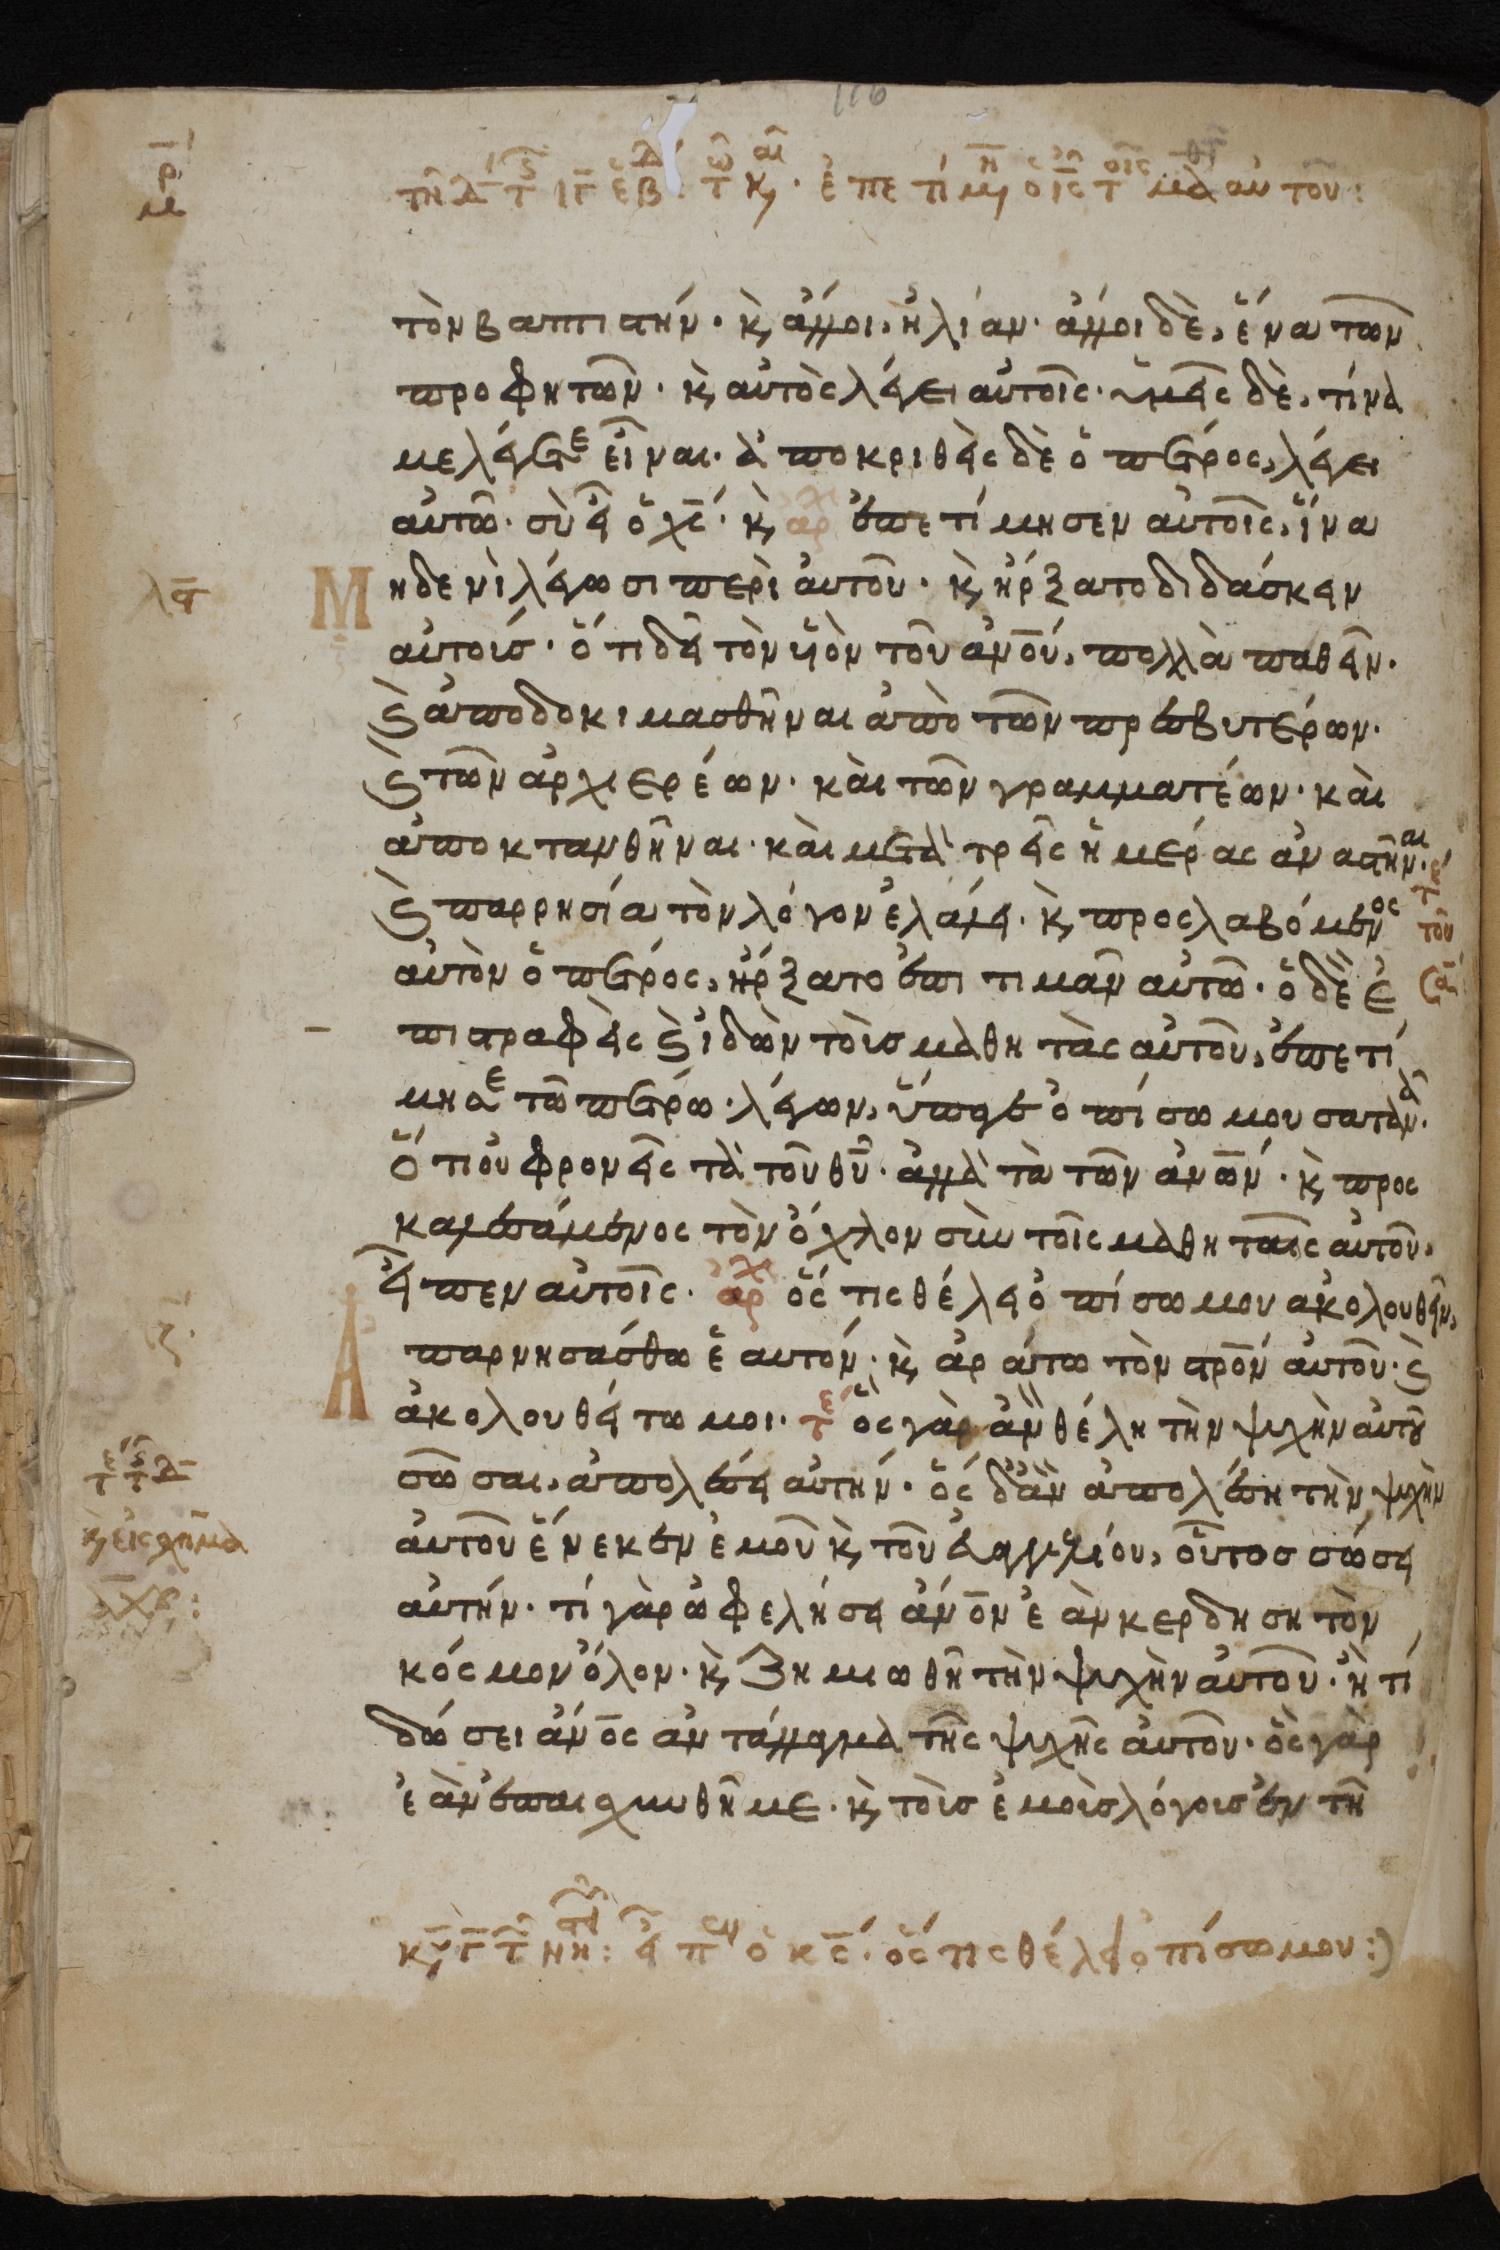 116
τὸν βαπτιστήν· κ, ἄλλοι, ἠλίαν· ἄλλοι δὲ, ἕνα τῶν
προφητῶν· κ, αὐτὸς λέγει αὐτοῖς· ὑμεῖς δὲ, τίνα
με λέγετε εἶναι· ἀποκριθεὶς δὲ ὁ πέτρος, λέγει
αὐτῶ· σὺ εἶ ὁ χς· κ, ἐπετίμησεν αὐτοῖς, ἵνα
Μηδενὶ λέγωσι περὶ αὐτοῦ· κ, ἤρξατο διδάσκειν
αὐτοὺσ· ὅτι δεῖ τὸν υἱὸν τοῦ ἀνου, πολλὰ παθεῖν·
κ, ἀποδοκιμασθῆναι ἀπὸ τῶν πρεσβυτέρων·
κ, τῶν ἀρχιερέων· καὶ τῶν γραμματέων· καὶ
ἀποκτανθῆναι· καὶ μετὰ τρεῖς ἡμέρας ἀναστῆναι·
κ, παρρησία τὸν λόγον ἐλάλει· κ, προσλαβόμενος
αὐτὸν ὁ πέτρος, ἤρξατο ἐπιτιμᾶν αὐτῶ· ὁ δὲ ἐ
πιστραφεὶς κ, ἰδὼν τοὺσ μαθητὰς αὐτοῦ, ἐπετί
μησε τῶ πέτρω· λέγων, ὕπαγε ὀπίσω μου σατανᾶ·
Ὅτι οὐ φρονεῖς τὰ τοῦ θυ· ἀλλὰ τὰ τῶν ἀνων· κ, προσ
καλεσάμενος τὸν ὄχλον σὺν τοῖς μαθηταῖς αὐτοῦ,
εἶπεν αὐτοῖς· ἀρχ ὅστις θέλει ὀπίσω μου ἀκολουθεῖν,
Ἀπαρνησάσθω ἑαυτόν· κ, ἀράτω τὸν στρον αὐτοῦ· κ,
ἀκολουθείτω μοι· τε ὃς γὰρ ἂν θέλη τὴν ψυχὴν αὐτοῦ
σῶσαι, ἀπολέσει αὐτήν· ὃς δ' ἂν ἀπολέση τὴν ψυχὴν
αὐτοῦ ἕνεκεν ἐμοῦ κ, τοῦ εὐαγγελίου, οὗτοσ σώσει
αὐτήν· τί γὰρ ὠφελήσει ἀνον ἐὰν κερδηση τὸν
κόσμον ὅλον· κ, ζημιωθῆ τὴν ψυχὴν αὐτοῦ· ἢ τί
δώσει ἀνος ἀντάλλαγμα τῆς ψυχῆς αὐτοῦ· ὃς γὰρ
ἐὰν ἐπαισχυνθῆ με· κ, τοὺσ ἐμοὺσ λόγουσ ἐν τῆ
ὁ κς· ὅστις θέλει ὀπίσω μου: